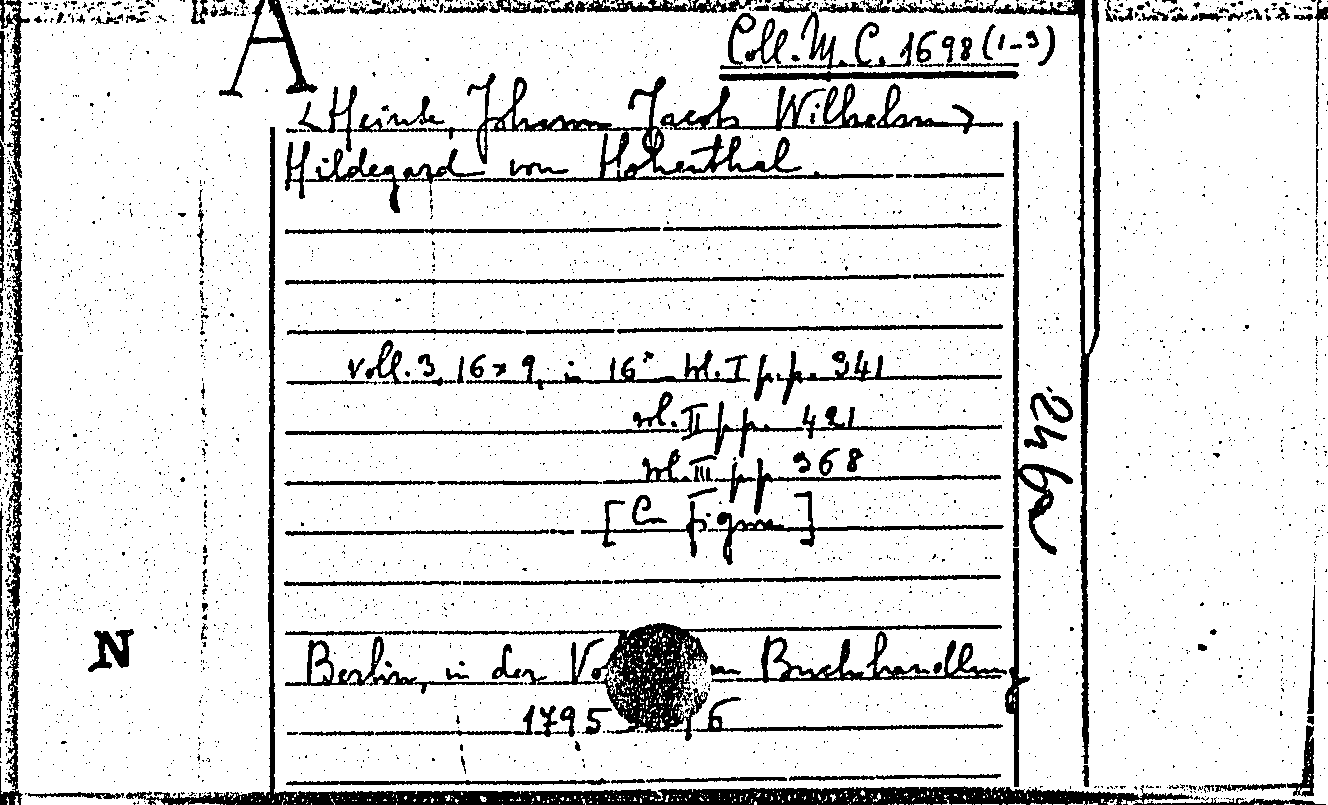 A
Coll. M. C. 1698 (1-3)
<Heinse, Johann Jacob Wilhelm>
Hildegard von Hohenthal.
voll. 3, 16 × 9, in 16° vol. I p.p. 341
vol. II p.p. 421
vol. III p p 368
[C figure]
246
N
Berlin, in der Vo n Buchhandlung
1795 6